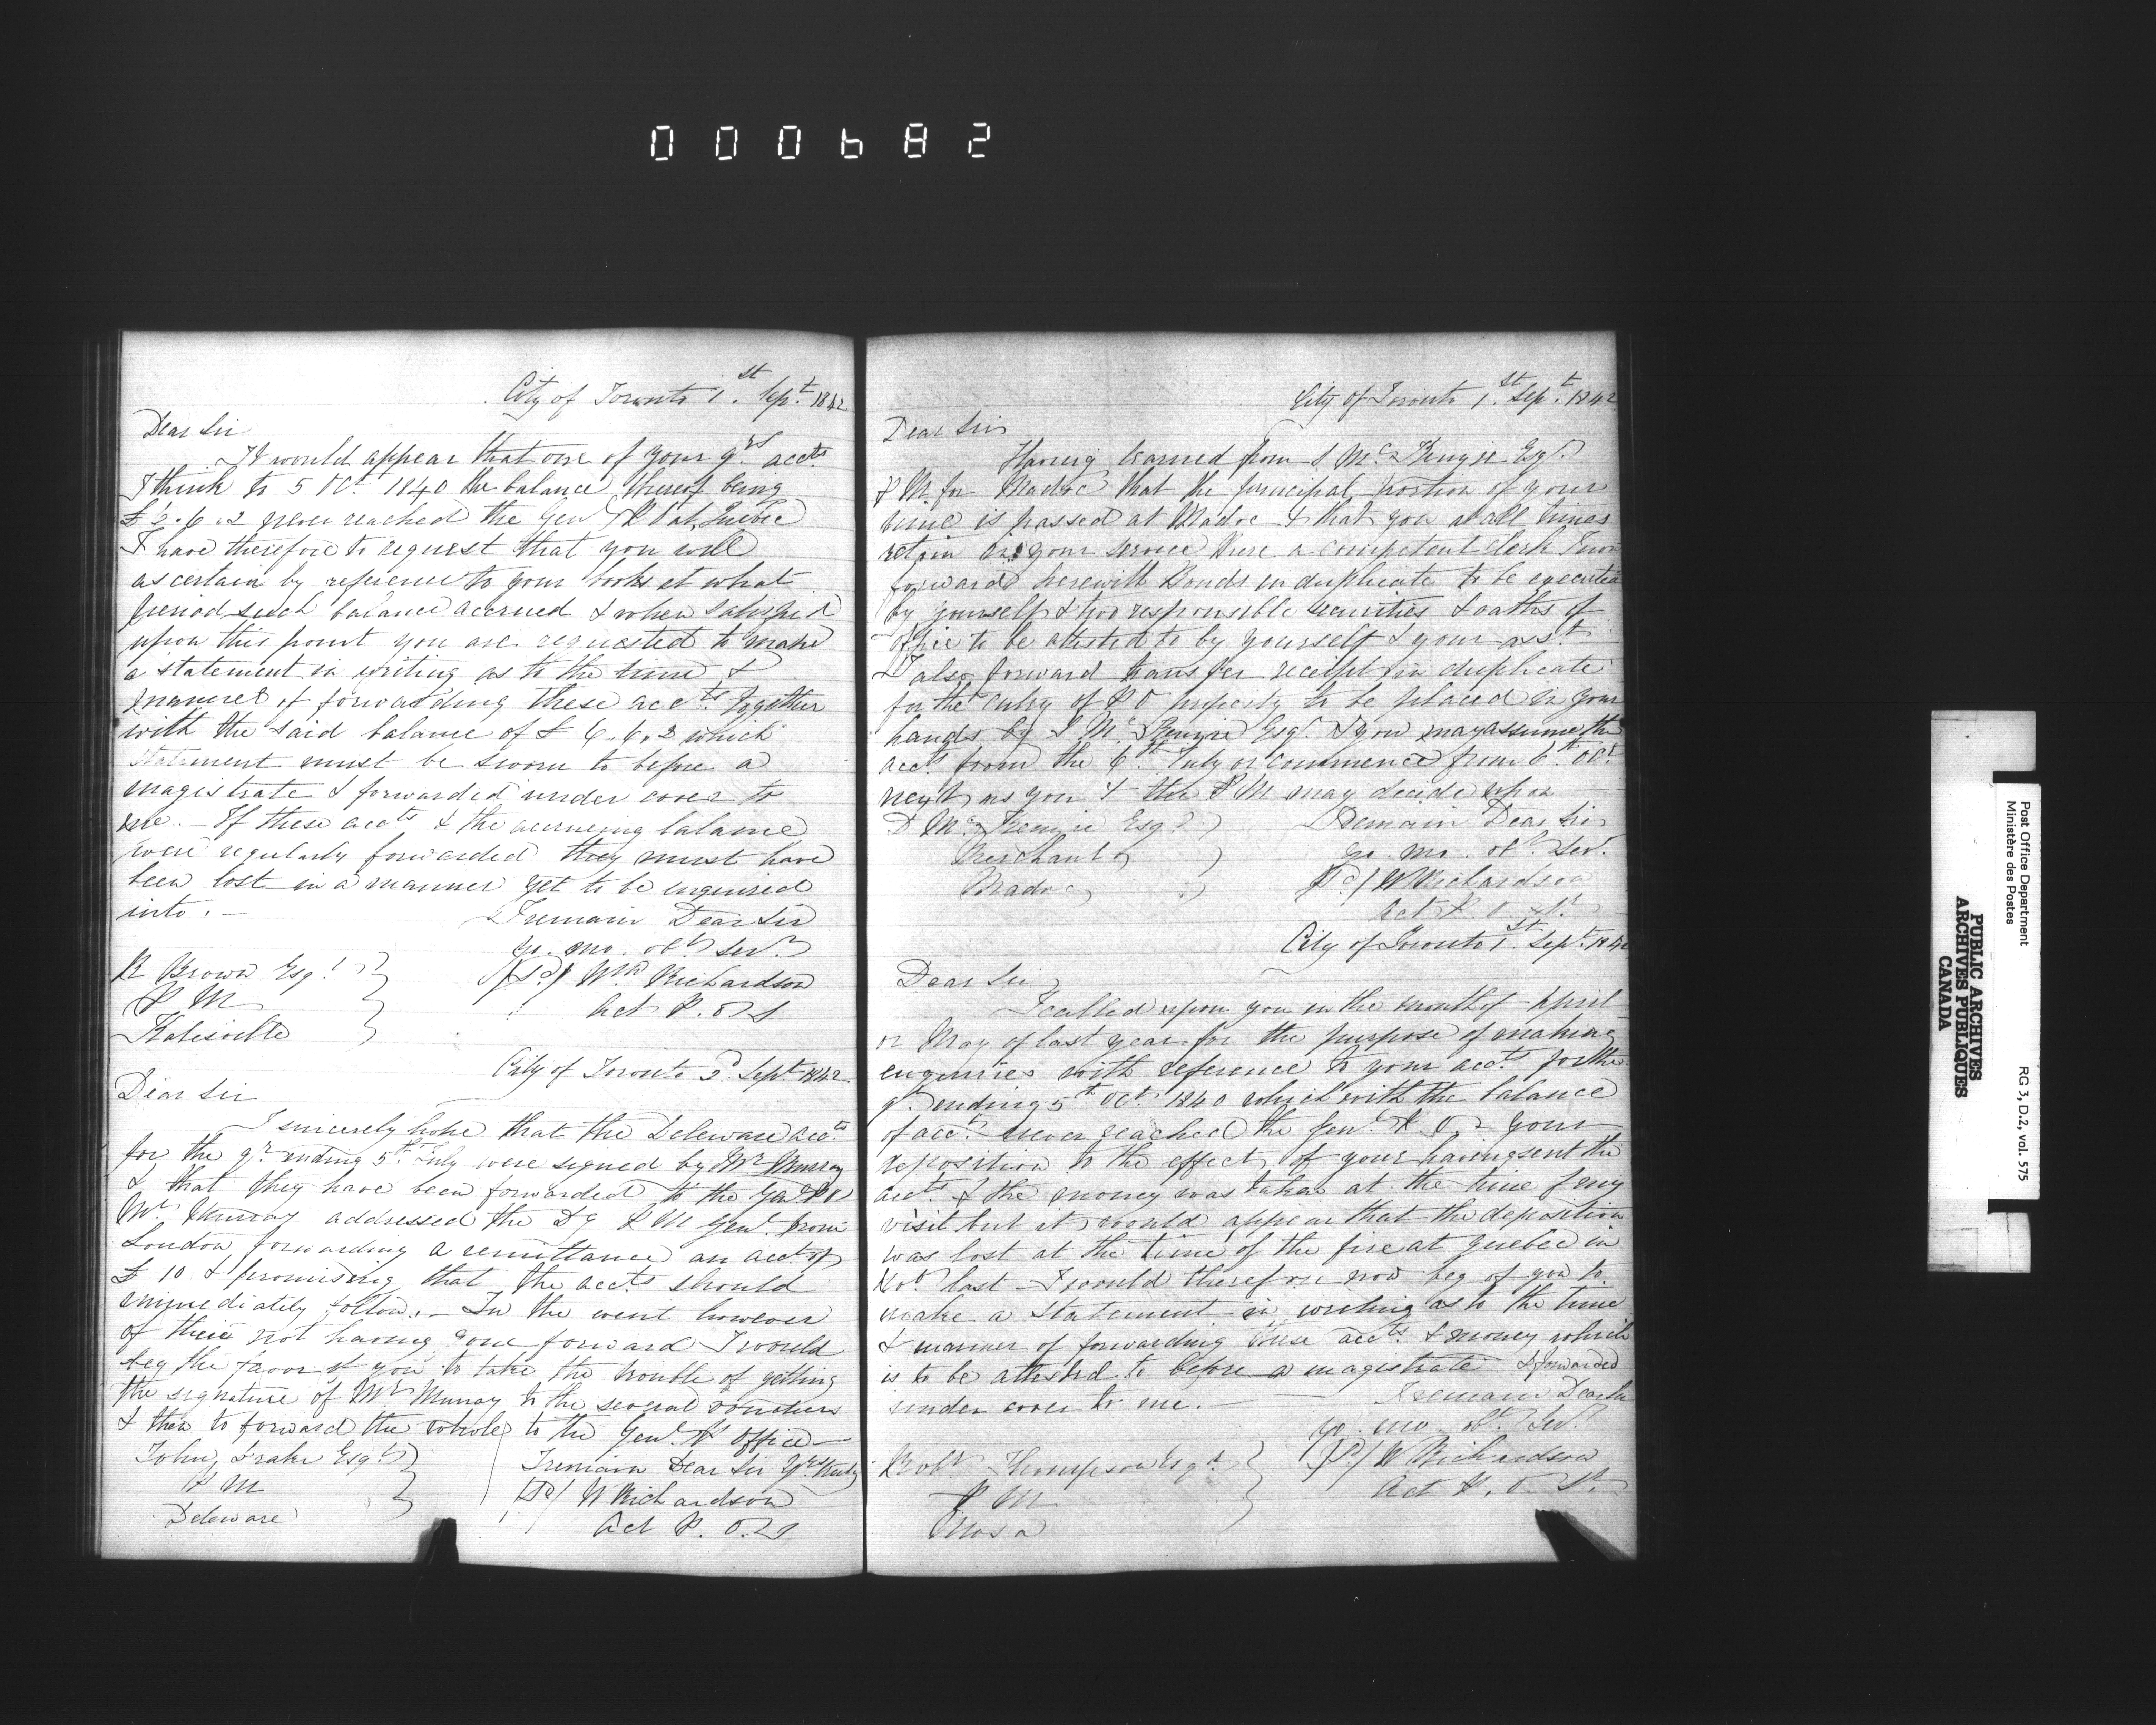 000682
City of Toronto 1st. Sept. 1842
Dear Sir
It would appear that one of your qrs accts
I think to 5 Oct. 1840 the balance thereof being
£ 6.2 never reached the Genl P O at Quebec
I have therefore to request that you will
ascertain by reference to your books at what
period such balance accrued & when satisfied
upon this point you are requested to make
a statement in writing as to the time &
manner of forwarding these accts. together
with the said balance of £ 6.6.2 which
statement must be sworn to before a
magistrate & forwarded under cover to
me. — If these accts & the accrueing balance
were regularly forwarded they must have
been lost in a manner yet to be enquired
into. —
I remain Dear Sir
yr. mo. obt Servt.
R Brown Esqr.
(Sd) Wm Richardson
P M
Act P. O. S
Katesville
City of Toronto Sept 1842
Dear Sir
I sincerely hope that the Deleware accts
for the qr. ending 5th. July were signed by Mr Murray
& that they have been forwarded to the Genl P O
Mr. Murray addressed the Dy P M Genl. from
London forwarding a remittance on acct of
£ 10 & promising that the accts should
immediately follow. — In the event however
of their not having gone forward I would
beg the favor of you to take the trouble of getting
the signature of Mr Murray to the several vouchers
& then to forward the whole to the Genl. P Office —
John Drake Esqr
I remain Dear Sir Yrs truly
P M
(Sd) W Richardson
Deleware
Act P. O. S
City of Toronto 1st. Sept. 1842
Dear Sir
Having learned from Mc.Kenzie Esqr.
P M. for Madoc that the principal portion of your
time is passed at Madoc & that you at all times
retain in your service there a competent clerk I now
forward herewith Bonds in duplicate to be executed
by yourself & two responsible securities & oaths of
office to be attested to by yourself & your asst.
I also forward transfer receipt in duplicate
for the entry of P O property to be placed in your
hands by Mc.Kenzie Esqr. & you may assume the
accts. from the 6th. July or commence from 6th Oct.
next as you & the P M may decide upon
D Mc.Kenzie Esqr.
I remain Dear Sir
Merchant
yr. mo. obt. Servt.
Madoc
(Sd) W Richardson
Act P. O. Sr
City of Toronto 1st. Sept. 1842
Dear Sir
I called upon you in the month of April
or May of last year for the purpose of making
enquiries with reference to your accts. for the
qr. ending 5th Oct. 1840 which with the balance
of acct. never reached the Genl. P. O. Your
deposition to the effect of your having sent the
accts. & the money was taken at the time of my
visit but it would appear that the deposition
was lost at the time of the fire at Quebec in
last — I would therefore now beg of you to
make a statement in writing as to the time
& manner of forwarding these accts. & money which
is to be attested to before a magistrate & forwarded
under cover to me. —
I remain Dear Sir
yr. mo. obt. Servt.
Robt Thompson Esqr
(Sd) W Richardson
P M
Act P. O. Sr.
Mosa
Post Office Department
Ministère des Postes
RG 3, D.2, vol. 575
PUBLIC ARCHIVES
ARCHIVES PUBLIQUES
CANADA